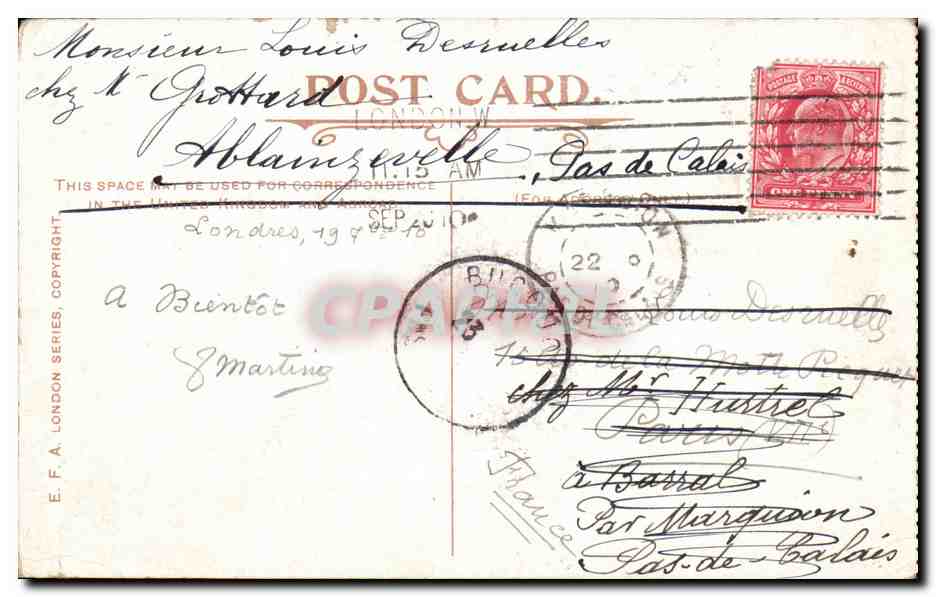 Monsieur Louis Desruelles
chez Mr Grottard
POST CARD.
LONDON.W
Ablainzevelle, Pas de Calais
11.15 AM
THIS SPACE MAY BE USED FOR CORRESPONDENCE
IN THE UNITED KINGDOM AND ABROAD
(FOR ADDRESS ONLY.)
SEP 20 10
POSTAGE
ONE PENNY
Londres, 19 7bre 10
A Bientôt
Martin
BUCQUOY
22
23
CPAPHIL
Louis Desruelles
de la Motte Picquet
chez Mr. Hustrel
Paris
à Barral
Par Marquion
Pas-de-Calais
France
E. F. A. LONDON SERIES, COPYRIGHT